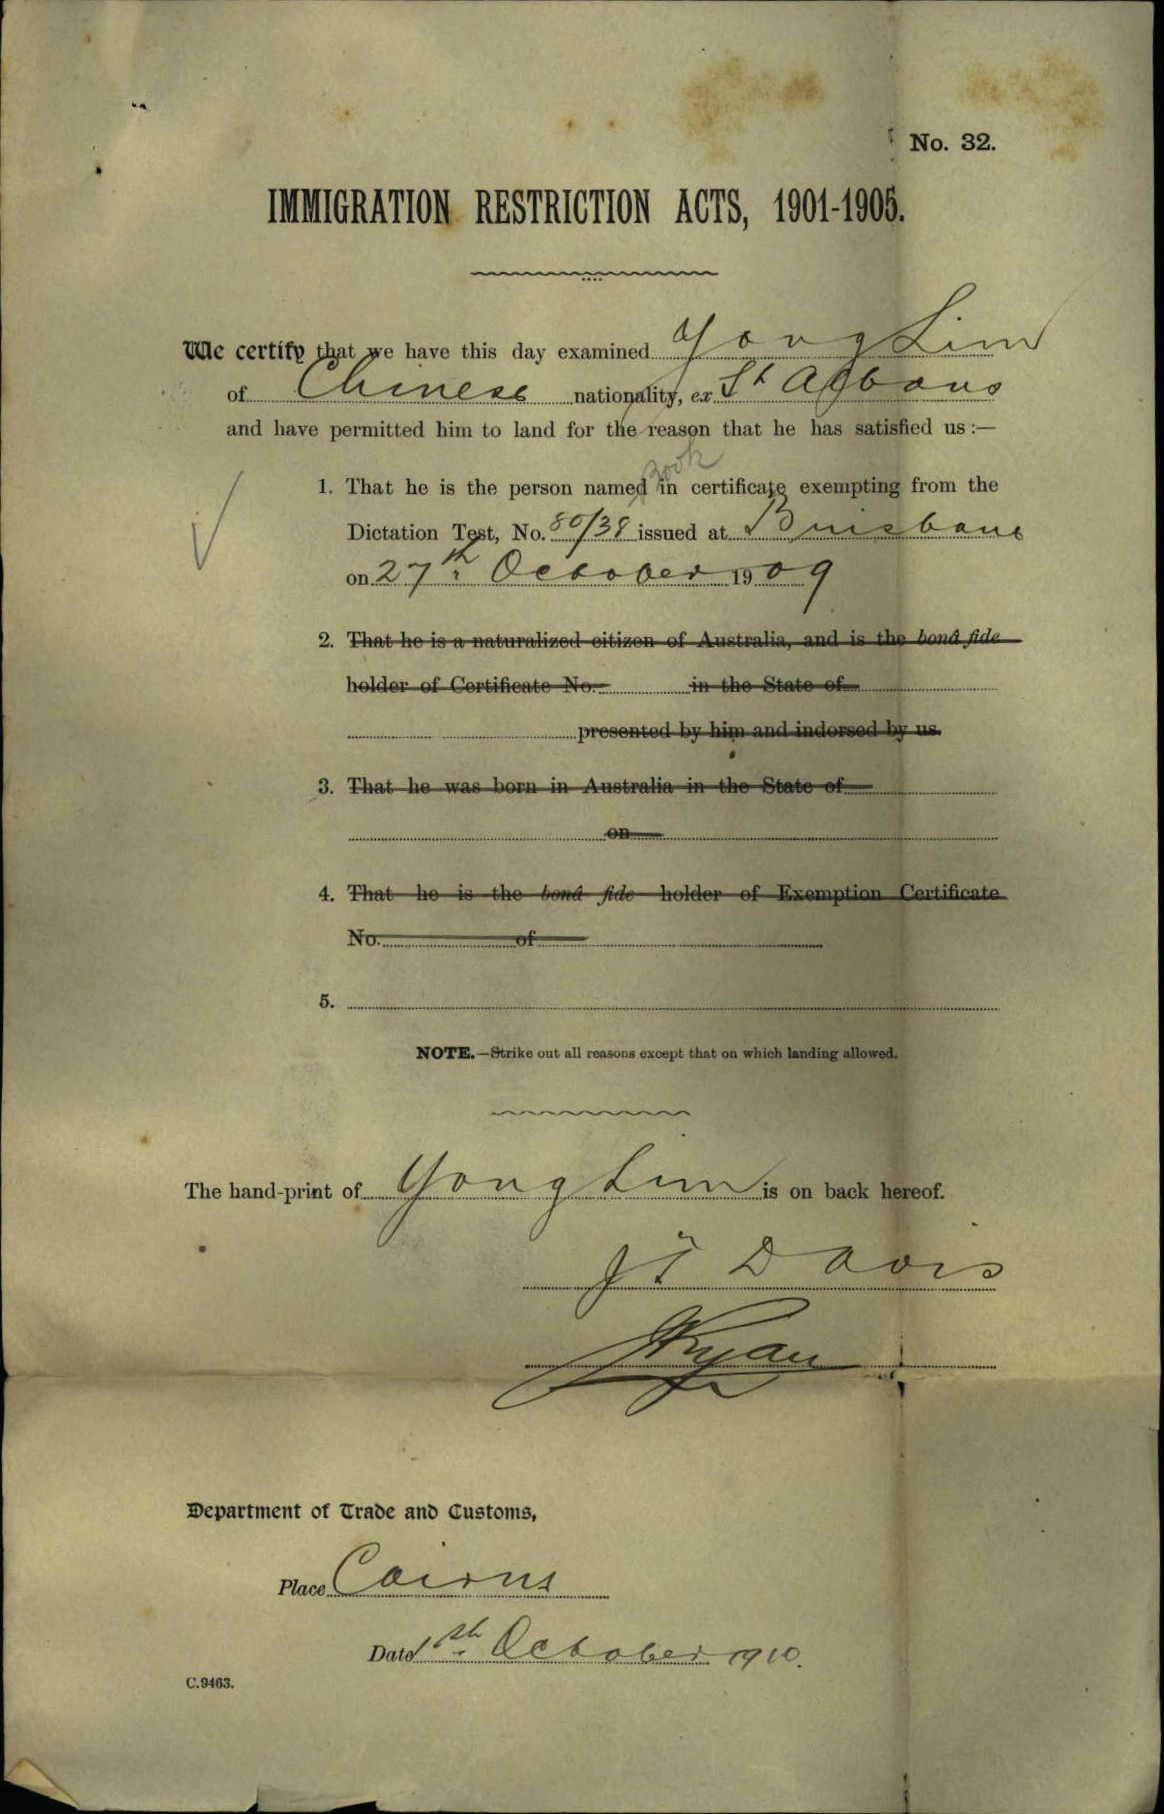 No. 32.
IMMIGRATION RESTRICTION ACTS, 1901-1905.
We certify that we have this day examined Yong Lim
of Chinese nationality, ex St Albans
and have permitted him to land for the reason that he has satisfied us :—
book
1. That he is the person named in certificate exempting from the
Dictation Test, No. 80/38 issued at Brisbane
on 27th October 1909
2. That he is a naturalized citizen of Australia, and is the bonâ fide
holder of Certificate No. in the State of
presented by him and indorsed by us.
3. That he was born in Australia in the State of
on
4. That he is the bonâ fide holder of Exemption Certificate
No. of
5.
NOTE.—Strike out all reasons except that on which landing allowed.
The hand-print of Yong Lim is on back hereof.
J T Davis
Ryan
Department of Trade and Customs,
Place Cairns
Date 1st October 1910.
C.9463.